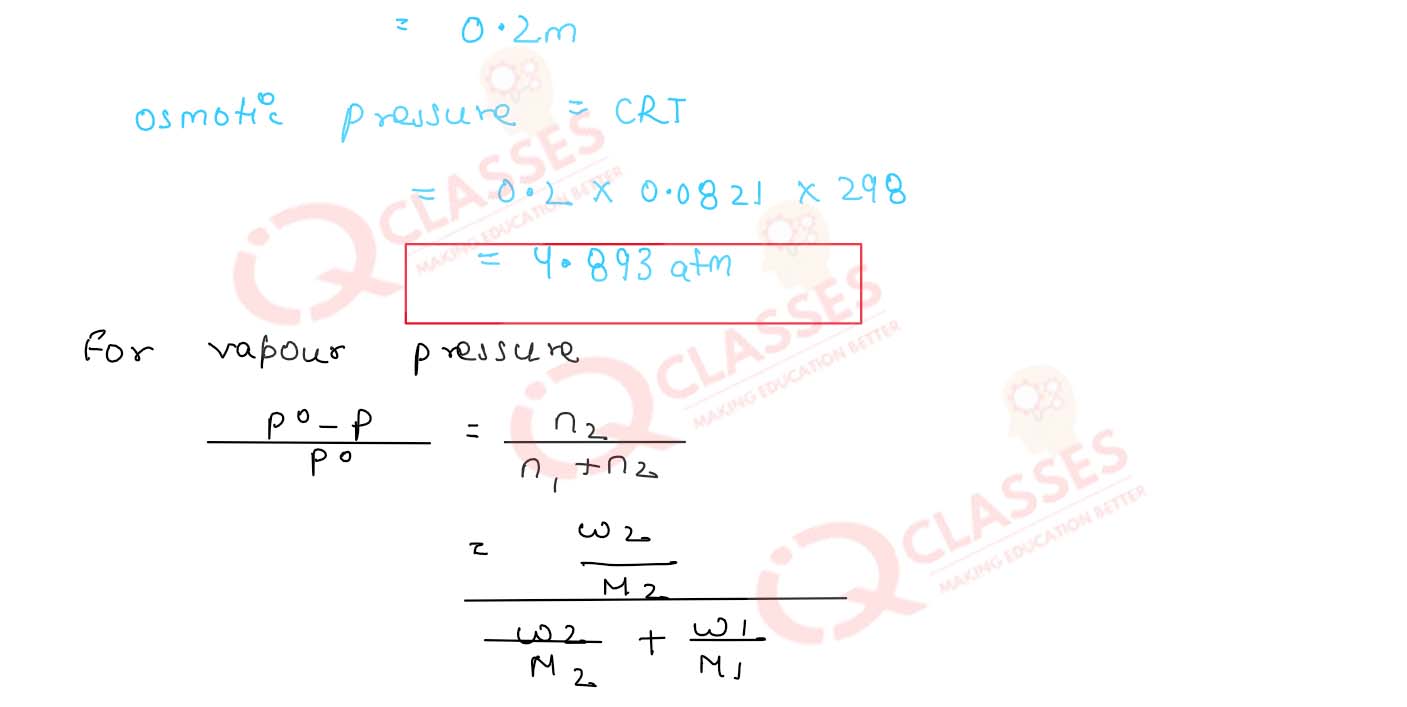 = 0.2m
osmotic pressure = CRT
= 0.2 × 0.0821 × 298
= 4.893 atm
For vapour pressure
P° - P / P° = n2 / n1 + n2
= w2 / M2 / w2 / M2 + w1 / M1
iQ CLASSES
MAKING EDUCATION BETTER
iQ CLASSES
MAKING EDUCATION BETTER
iQ CLASSES
MAKING EDUCATION BETTER